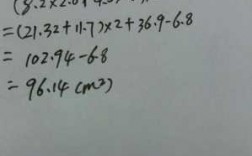 =(21.32+11.7)×2+36.9-6.8
= 102.94-6.8
= 96.14(m²)